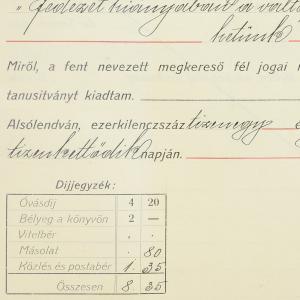 „fedezet hiányában" a vált
hetünk
Miről, a fent nevezett megkereső fél jogai
tanusitványt kiadtam.
Alsólendván, ezerkilenczszáz tizenegy
tizenkettődik napján.
Dijjegyzék:
Óvásdij 4 20
Bélyeg a könyvön 2 —
Vitelbér . .
Másolat . 80
Közlés és postabér 1. 35
Összesen 8. 35